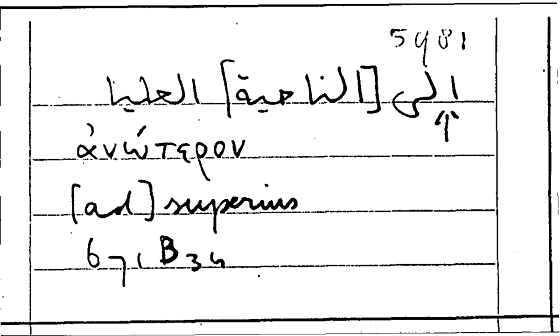 5981
الى [الناحية] العليا
ἀνώτερον
[ad] superius
671 B 34